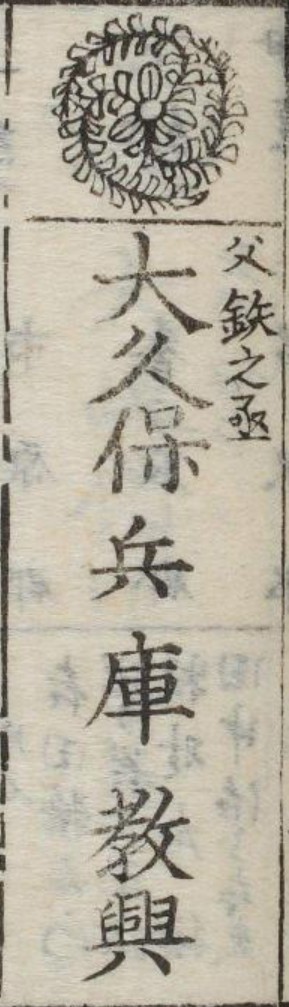 父鉄之丞
大久保兵庫教興